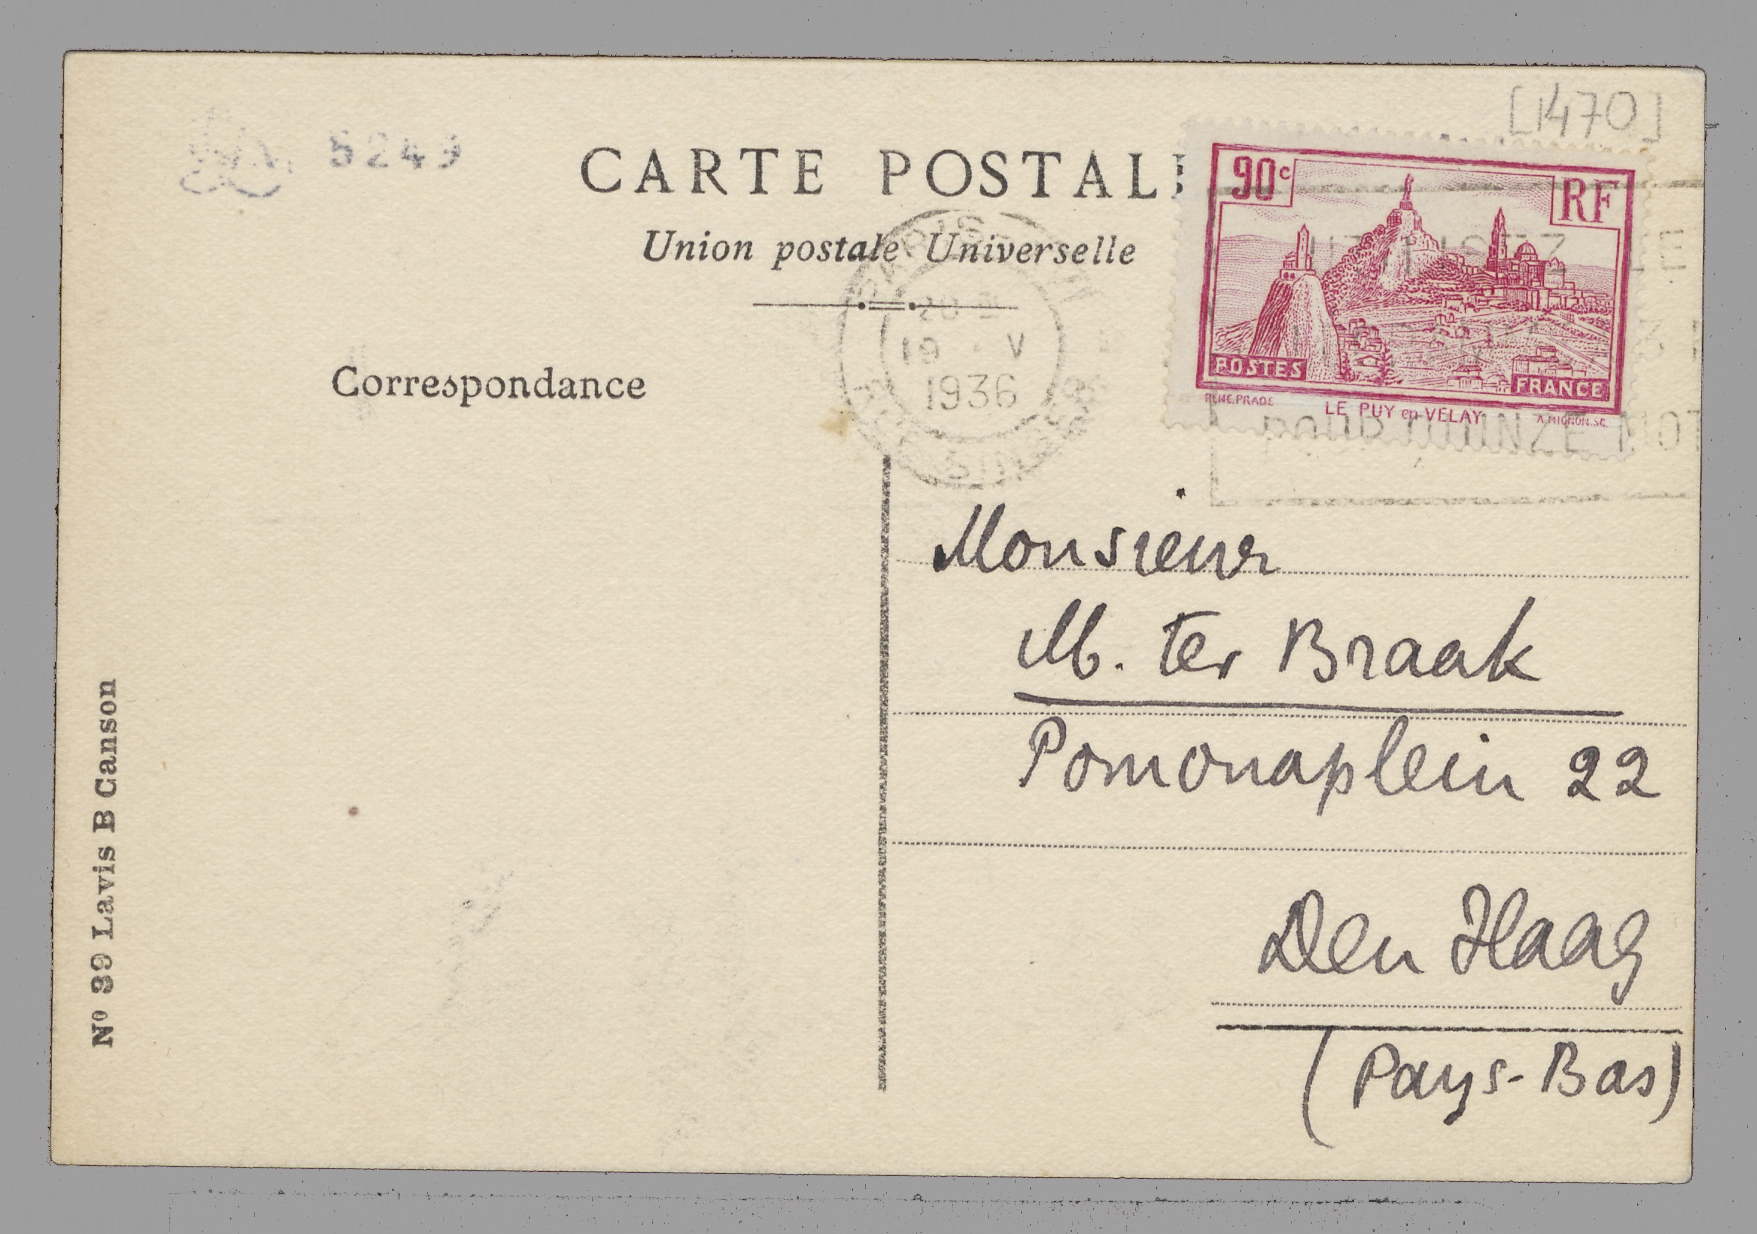 [1470]
5249
CARTE POSTALE
Union postale Universelle
Correspondance
PARIS
20
19 V
1936
90c
RF
POSTES
FRANCE
LE PUY en VELAY
POUR QUINZE MOT
Monsieur
M. ter Braak
Pomonaplein 22
Den Haag
(Pays-Bas)
No 39 Lavis B Canson